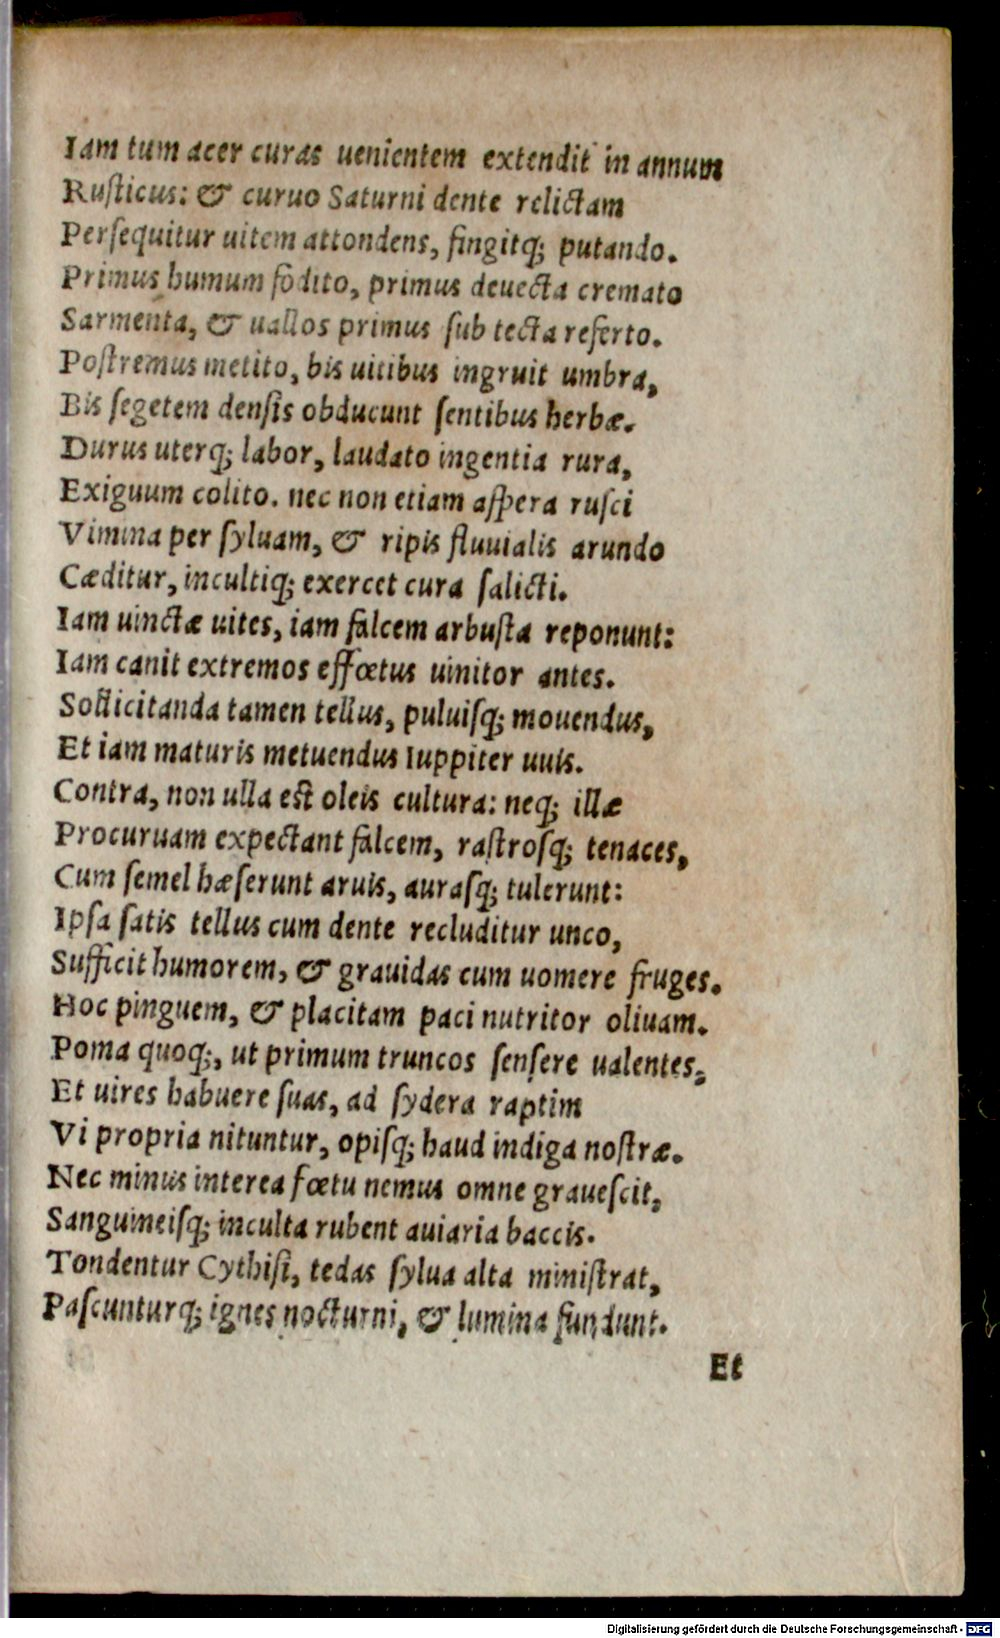 Iam tum acer curas uenientem extendit in annum
Ruſticus: & curuo Saturni dente relictam
Perſequitur uitem attondens, fingitq; putando.
Primus humum fodito, primus deuecta cremato
Sarmenta, & uallos primus ſub tecta referto.
Poſtremus metito, bis uitibus ingruit umbra,
Bis ſegetem denſis obducunt ſentibus herbæ.
Durus uterq; labor, laudato ingentia rura,
Exiguum colito. nec non etiam aſpera ruſci
Vimina per ſyluam, & ripis fluuialis arundo
Cæditur, incultiq; exercet cura ſalicti.
Iam uinctæ uites, iam falcem arbuſta reponunt:
Iam canit extremos effœtus uinitor antes.
Sollicitanda tamen tellus, puluiſq; mouendus,
Et iam maturis metuendus Iuppiter uuis.
Contra, non ulla eſt oleis cultura: neq; illæ
Procuruam expectant falcem, raſtroſq; tenaces,
Cum ſemel hæſerunt aruis, auraſq; tulerunt:
Ipſa ſatis tellus cum dente recluditur unco,
Sufficit humorem, & grauidas cum uomere fruges.
Hoc pinguem, & placitam paci nutritor oliuam.
Poma quoq;, ut primum truncos ſenſere ualentes,
Et uires habuere ſuas, ad ſydera raptim
Vi propria nituntur, opiſq; haud indiga noſtræ.
Nec minus interea fœtu nemus omne graueſcit,
Sanguineiſq; inculta rubent auiaria baccis.
Tondentur Cythiſi, tedas ſylua alta miniſtrat,
Paſcunturq; ignes nocturni, & lumina fundunt.
Et
Digitalisierung gefördert durch die Deutsche Forschungsgemeinschaft - DFG